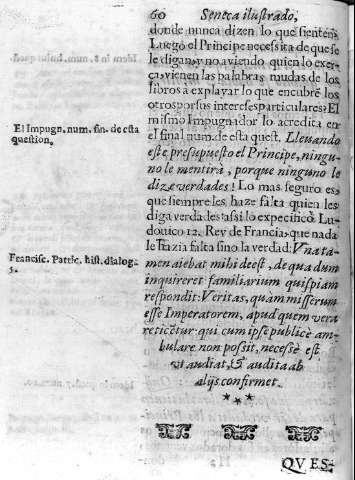 60 Seneca ilustrado,
donde nunca dizen lo que sienten?
Luego el Principe necessita de que se
le digan, y no aviendo quien lo exer-
ça, vienen las palabras mudas de los
libros à explayar lo que encubrē los
otros por sus interesses particulares? El
mismo Impugnador lo acredita en
el final num. de esta quest. Llevando
este presupuesto el Principe, ningu-
no le mentirà, porque ninguno le
dize verdades! Lo mas seguro es,
que siempre les haze falta quien les
diga verdades: assi lo especificò Lu-
dovico 12. Rey de Francia, que nada
le hazia falta sino la verdad: Vna ta-
men aiebat mihi deest, de qua dum
inquireret familiarium quispiam
respondit: Veritas, quam misserum
esse Imperatorem, apud quem vera
reticētur qui cum ipse publicè am-
bulare non possit, necesse est
vt audiat, & audita ab
alijs confirmet.
El Impugn. num. fin. de esta
question.
Francisc. Patric. hist. dialog.
5.
QVES-